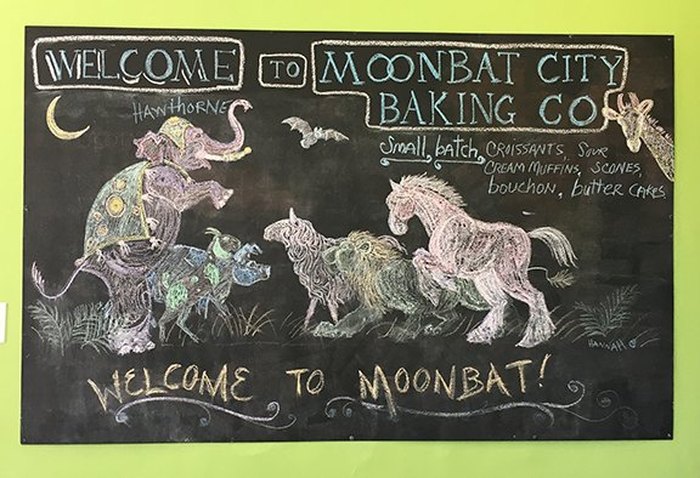 WELCOME TO MOONBAT CITY
BAKING CO
HAWTHORNE
Small batch CROISSANTS, SOUR
CREAM MUFFINS, SCONES,
bouchon, butter CAKES
HANNAH
WELCOME TO MOONBAT!